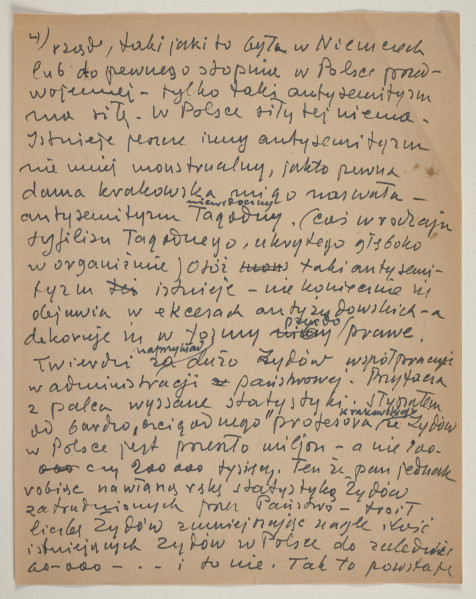 4)
rząd, taki jaki to była w Niemczech
lub do pewnego stopnia w Polsce przed-
wojennej – tylko taki antysemityzm
ma siłę. W Polsce siły tej niema.
Istnieje jeszcze inny antysemityzm
nie mniej monstrualny, jak to pewna
dama krakowska mi go nazwała –
niewidoczny
antysemityzm łagodny. (Coś w rodzaju
syfilisu łagodnego, ukrytego głęboko
w organizmie) Otóż taki antysemi-
tyzm istnieje – nie koniecznie się
objawia w ekscesach antyżydowskich – a
dekoruje się w togę pseudo prawe.
Twierdzi naprzykład za dużo Żydów współpracuje
w administracji państwowej. Przytacza
z palca wyssane statystyki. Słyszałem
od bardzo "porządnego" profesora krakowskiego że Żydów
w Polsce jest przeszło miljon – a nie 100-
000 czy 200 000 tysięcy. Ten że pan jednak
robiąc nawiasową statystykę Żydów
zatrudnionych przez Państwo – zrobił
liczbę Żydów zmniejszając nagle ilość
istniejących Żydów w Polsce do zaledwie
60-000 – . . i to nie. Tak to powstaje